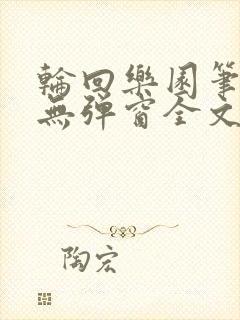 輪回樂園筆
無彈窗全文
陶宏